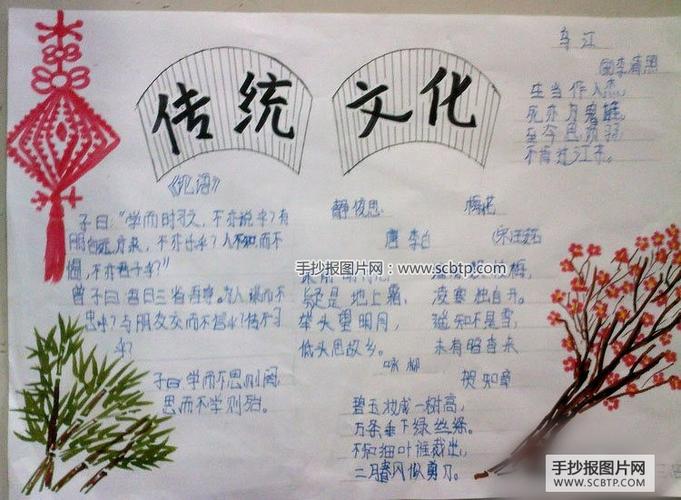 传统 文化
乌江
宋李清照
生当作人杰,
死亦为鬼雄。
至今思项羽
不肯过江东。
《论语》
子曰:"学而时习之,不亦说乎?有
朋自远方来,不亦乐乎?人不知而不
愠,不亦君子乎?"
曾子曰:吾日三省吾身。为人谋而不
忠乎?与朋友交而不信乎?传不习
乎?
子曰:学而不思则罔,
思而不学则殆。
静夜思
唐 李白
疑是地上霜,
举头望明月,
低头思故乡。
梅花
宋王安石
梅,
凌寒独自开。
遥知不是雪,
未有暗香来
咏柳
贺知章
碧玉妆成一树高,
万条垂下绿丝绦。
不知细叶谁裁出,
二月春风似剪刀。
手抄报图片网:www.scbtp.com
手抄报图片网
WWW.SCBTP.COM